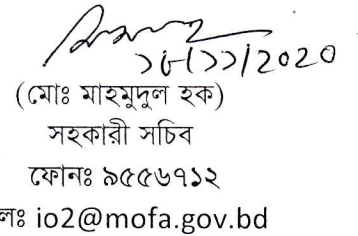 ১৮/১১/2020
(মোঃ মাহমুদুল হক)
সহকারী সচিব
ফোনঃ ৯৫৫৬৭১২
লঃ io2@mofa.gov.bd